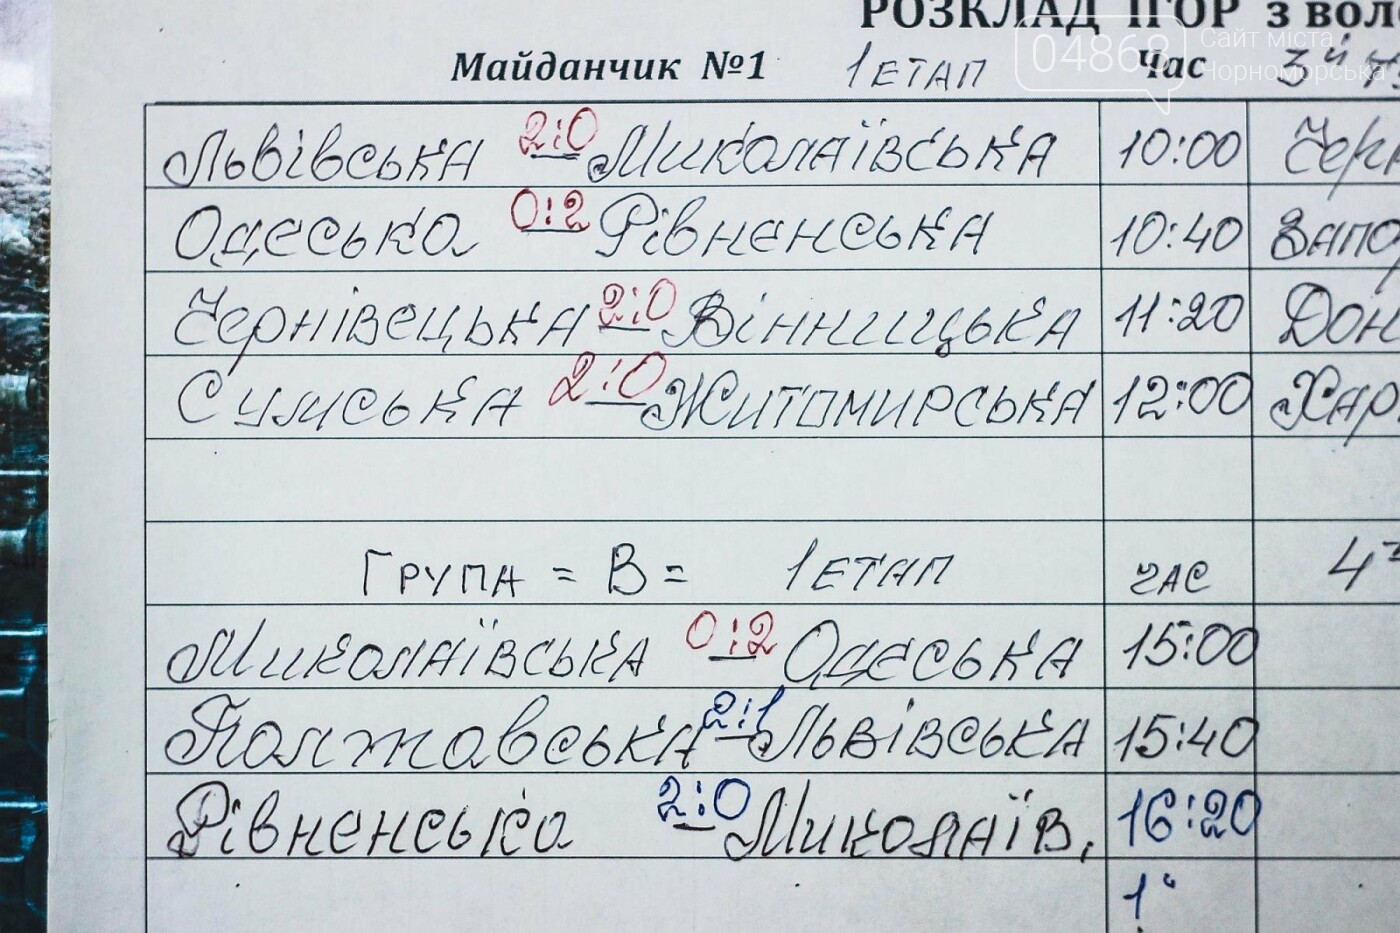 РОЗКЛАД ІГОР з вол
04868 Сайт міста Чорноморська
Майданчик №1 1 ЕТАП Час 3
Львівська 2:0 Миколаївська 10:00 Черн
Одеська 0:2 Рівненська 10:40 Запо
Чернівецька 2:0 Вінницька 11:20 Дон
Сумська 2:0 Житомирська 12:00 Хар
Група = В = 1 ЕТАП час 4
Миколаївська 0:2 Одеська 15:00
Полтавська 2:1 Львівська 15:40
Рівненська 2:0 Миколаїв. 16:20